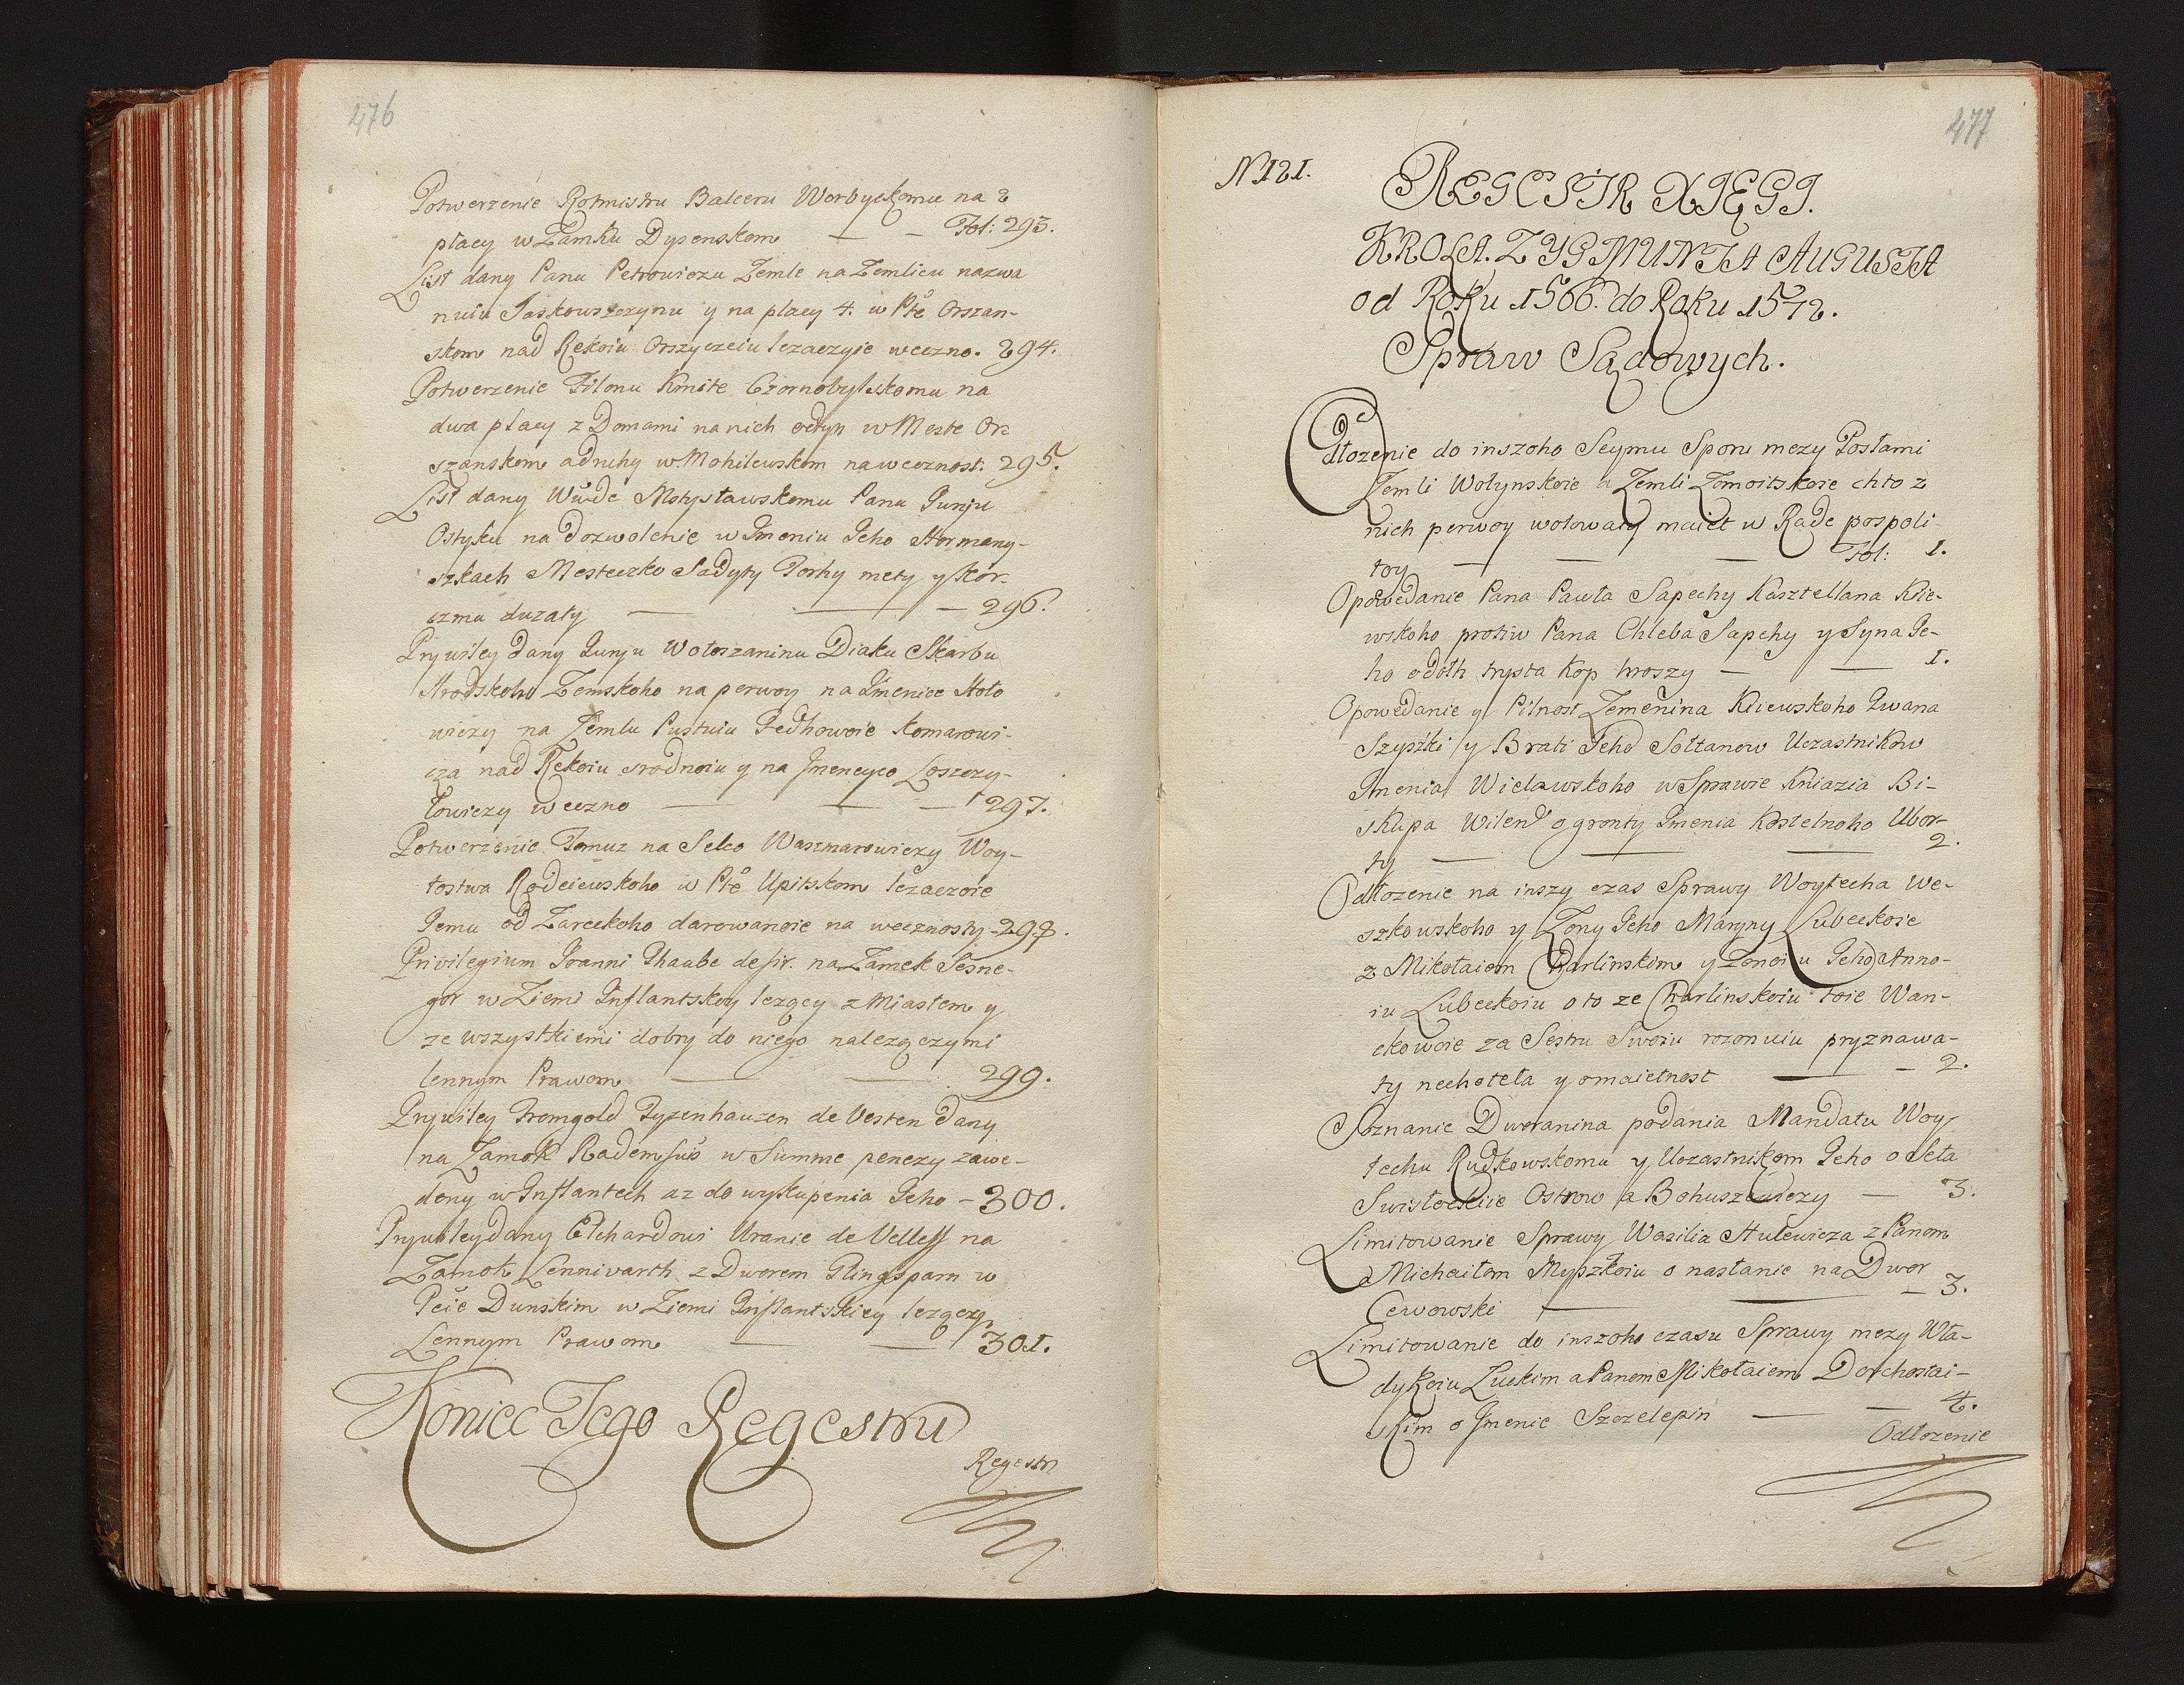 476
Potwerzenie Rotmistru Balceru Werbyckomu na 2
płacy w Zamku Dysenskom — — Fol: 293.
List dany Panu Petrowiczu Zemle na Zemlicu nazwa
nuiu Jaskowszczynu y na placy 4. w Pte Orszan-
skom nad Rekoiu Orszyceiu lezaczyie weczno. 294.
Potwerzenie Filonu Kmite Czornobylskomu na
dwa płacy z Domami na nich odyn w Meste Or-
szanskom a druhy w Mohilewskom na wecznost. 295.
List dany Wwde Mstysławskomu Panu Jurju
Ostyku na dozwolenie w Jmeniu Jeho Hormany-
szkach Mesteczko Sadyty Torhy mety y Kor-
czmu duzaty — — — 296.
Prywiley dany Jurju Wołoszaninu Diaku Skarbu
Hrodskoho Zemskoho na perwoy na Jmenice Hoło
wiczy na Zemlu Pustuiu Fedkowoie Komarowi-
cza nad Rekoiu srodnoiu y na Jmeneyco Loszczy-
łowiczy weczno — — — 297.
Potwerzenie Tomuz na Selco Waszmarowiczy Woy-
tostwa Rodeiewskoho w Pte Upitskom lezaczoie
Jemu od Zareckoho darowanoie na wecznosty - 298.
Privilegium Joanni Thaube desir. na Zamek Sesne-
gor w Ziemi Jnflantskoy lezący z Miastem y
ze wszystkiemi dobry do niego nalezączymi
lennym Prawem — — 299.
Prywiley Fromgold Tyzenhauzen de Vesten dany
na Zamok Kadempus w Summe penezy zawe-
deny w Jnflantech az do wykupenia Jeho - 300.
Prywiley dany Elchardowi Kranie de Velleff na
Zamok Lennivarth z Dworem Glingsparn w
Pcie Dunskim w Ziemi Jnflantskiey lezący
Lennym Prawom — — 301.
Koniec Tego Regestru
Regestr
477
N 121.
REGESTR XIĘGI.
KROLA. ZYGMUNTA AUGUSTA
od Roku 1566. do Roku 1572.
Spraw Sądowych.
Odłozenie do inszoho Seymu Sporu mezy Posłami
Zemli Wołynskoie a Zemli Zomoitskoie chto z
nich perwoy wotowaty maiet w Rade pospoli
toy — — — Fol: 1.
Opowedanie Pana Pawła Sapechy Kasztellana Kiie-
wskoho protiw Pana Chleba Sapehy y Syna Je-
ho o dołh trysta Kop hroszy — — 1.
Opowedanie y Pilnost Zemenina Kiiewskoho Jwana
Szyszki y Brati Jeho Sołtanow Uczastnikow
Jmenia Wielawskoho w Sprawie Kniazia Bi-
skupa Wilend o gronty Jmenia Kostelnoho Ubor-
ty — — — 2.
Odłozenie na inszy czas Sprawy Woytecha We-
szkowskoho y Zony Jeho Maryny Lubeckoie
z Mikołaiom Charlinskim y Zonoiu Jeho Anno-
iu Lubeckoiu o to ze Charlinskoiu toie Wan-
ckowoie za Sestru Swoiu rozonuiu pryznawa-
ty nechoteła y o maietnost — — 2.
Soznanie Dworanina podania Mandatu Woy
techu Rudkowskomu y Uczastnikom Jeho o Seła
Swistockiie Ostrow a Bohuszewiczy — 3.
Limitowanie Sprawy Wasilia Hulewicza z Panom
Michaiłom Myszkoiu o nasłanie na Dwor
Cewowski — — — 3.
Limitowanie do inszoho czasu Sprawy mezy Wła-
dykoiu Łuckim a Panom Mikołaiem Dorohostai-
skim o Jmenie Szczelepin — — 4.
Odłozenie